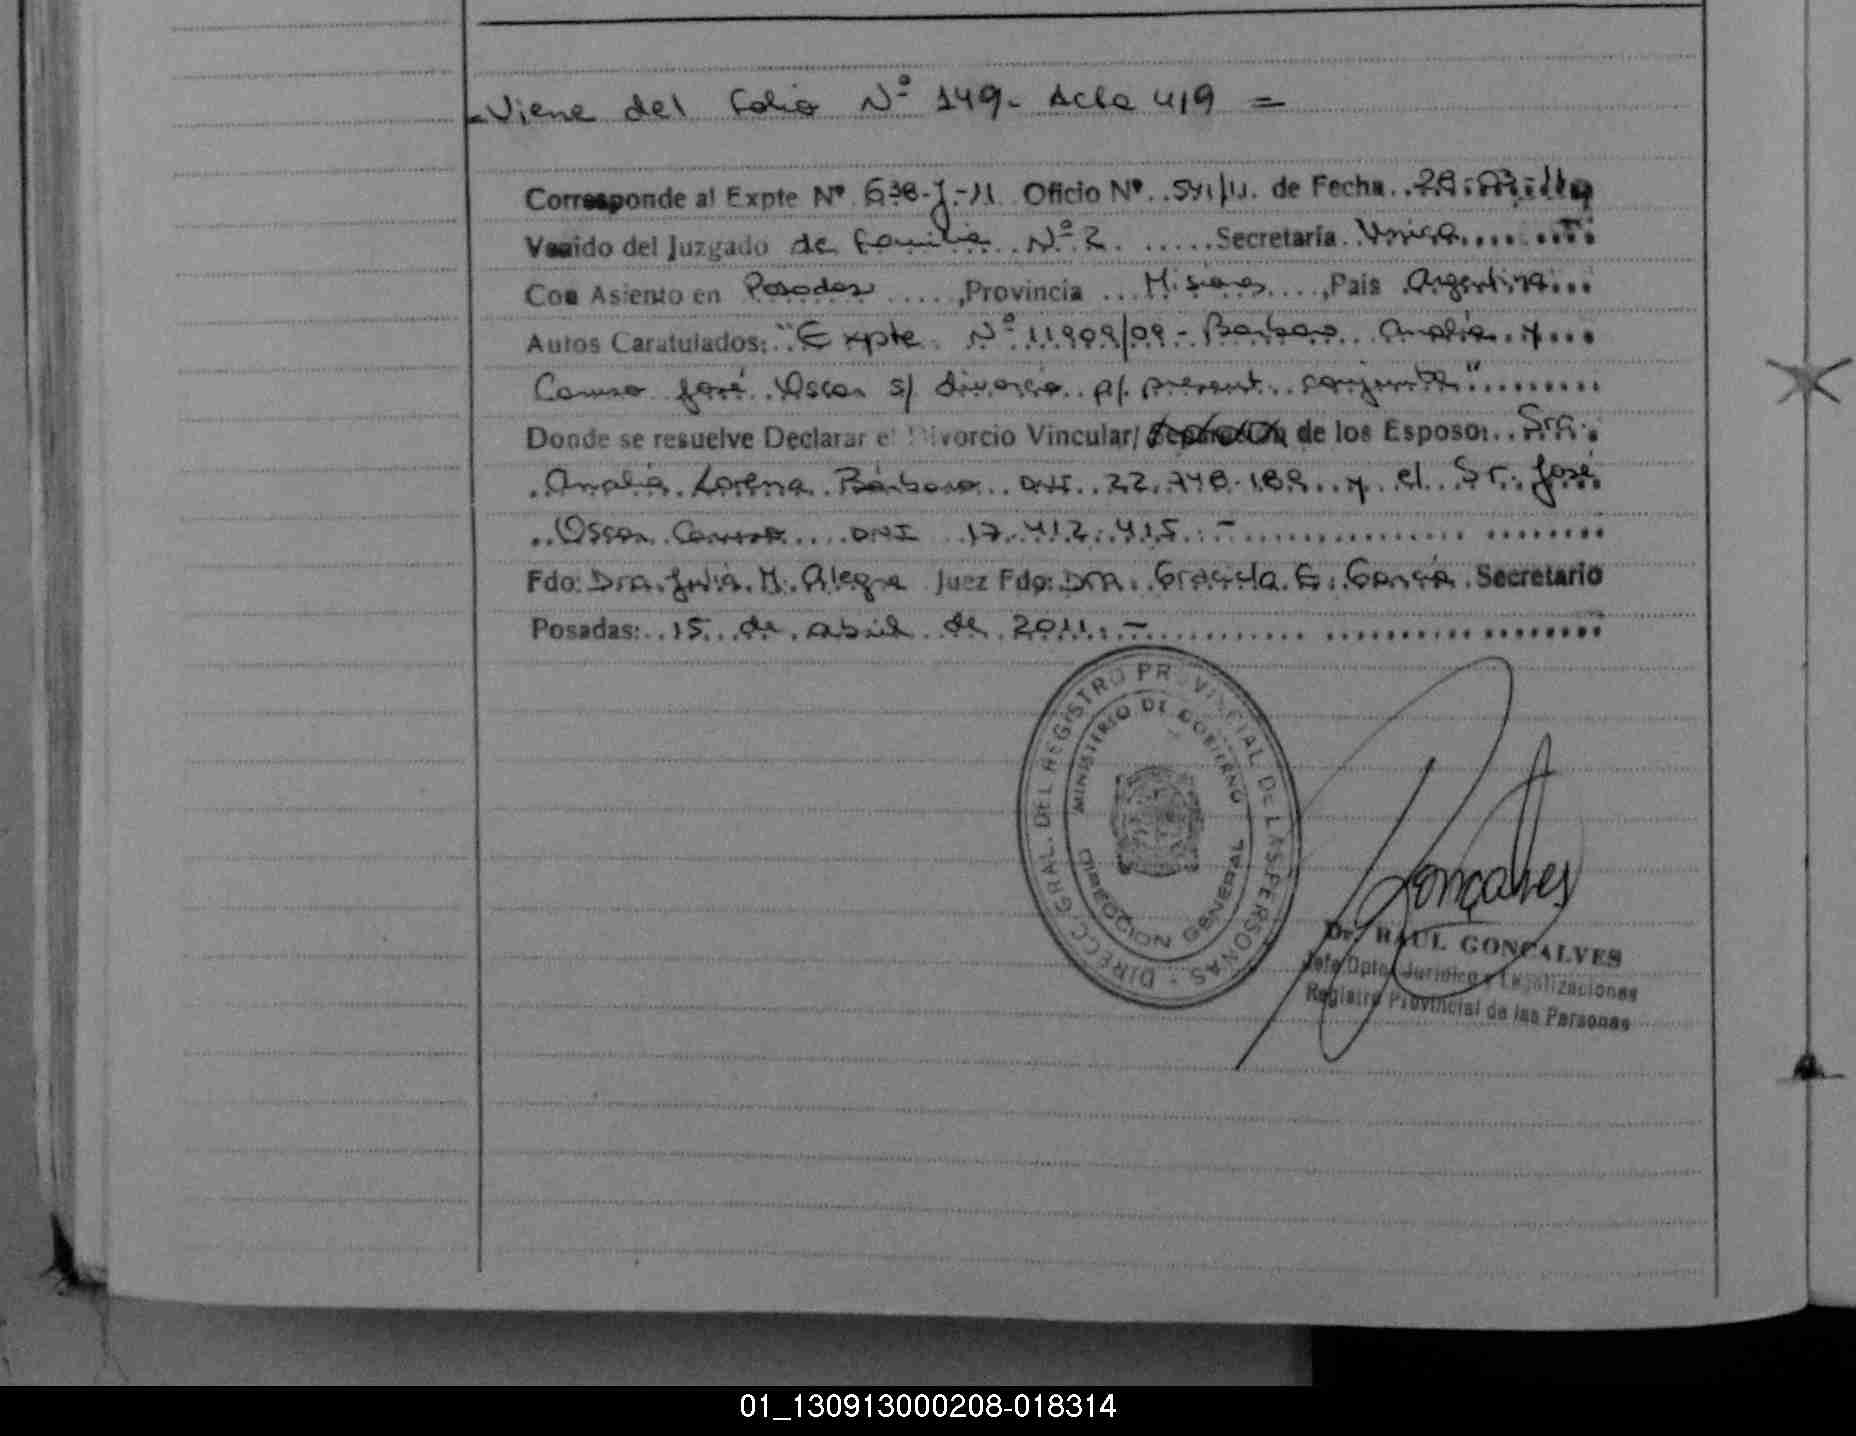 Viene del Folio Nº 149 - Acta 419 =
Corresponde al Expte Nº 638-J-11 Oficio Nº 541/11. de Fecha 28.03.11
Venido del Juzgado de Familia Nº 2 Secretaría Unica
Con Asiento en Posadas, Provincia Misiones, País Argentina
Autos Caratulados: "Expte Nº 11909/09 - Barbaro Analia y
Caruso José Oscar s/ divorcio p/ present. conjunta"
Donde se resuelve Declarar el Divorcio Vincular/ Separación de los Esposos Sra.
Analia Lorena Bárbaro DNI 22.748.189 y el Sr. José
Oscar Caruso DNI 17.412.415.-
Fdo: Dra. Julia M. Alegre Juez Fdo: Dra. Graciela E. García Secretario
Posadas: 15 de abril de 2011.-
DIRECC. GRAL. DEL REGISTRO PROVINCIAL DE LAS PERSONAS
MINISTERIO DE GOBIERNO
DIRECCION GENERAL
Gonçalves
Dr. RAUL GONÇALVES
Jefe Dpto. Jurídico y Legalizaciones
Registro Provincial de las Personas
01_130913000208-018314